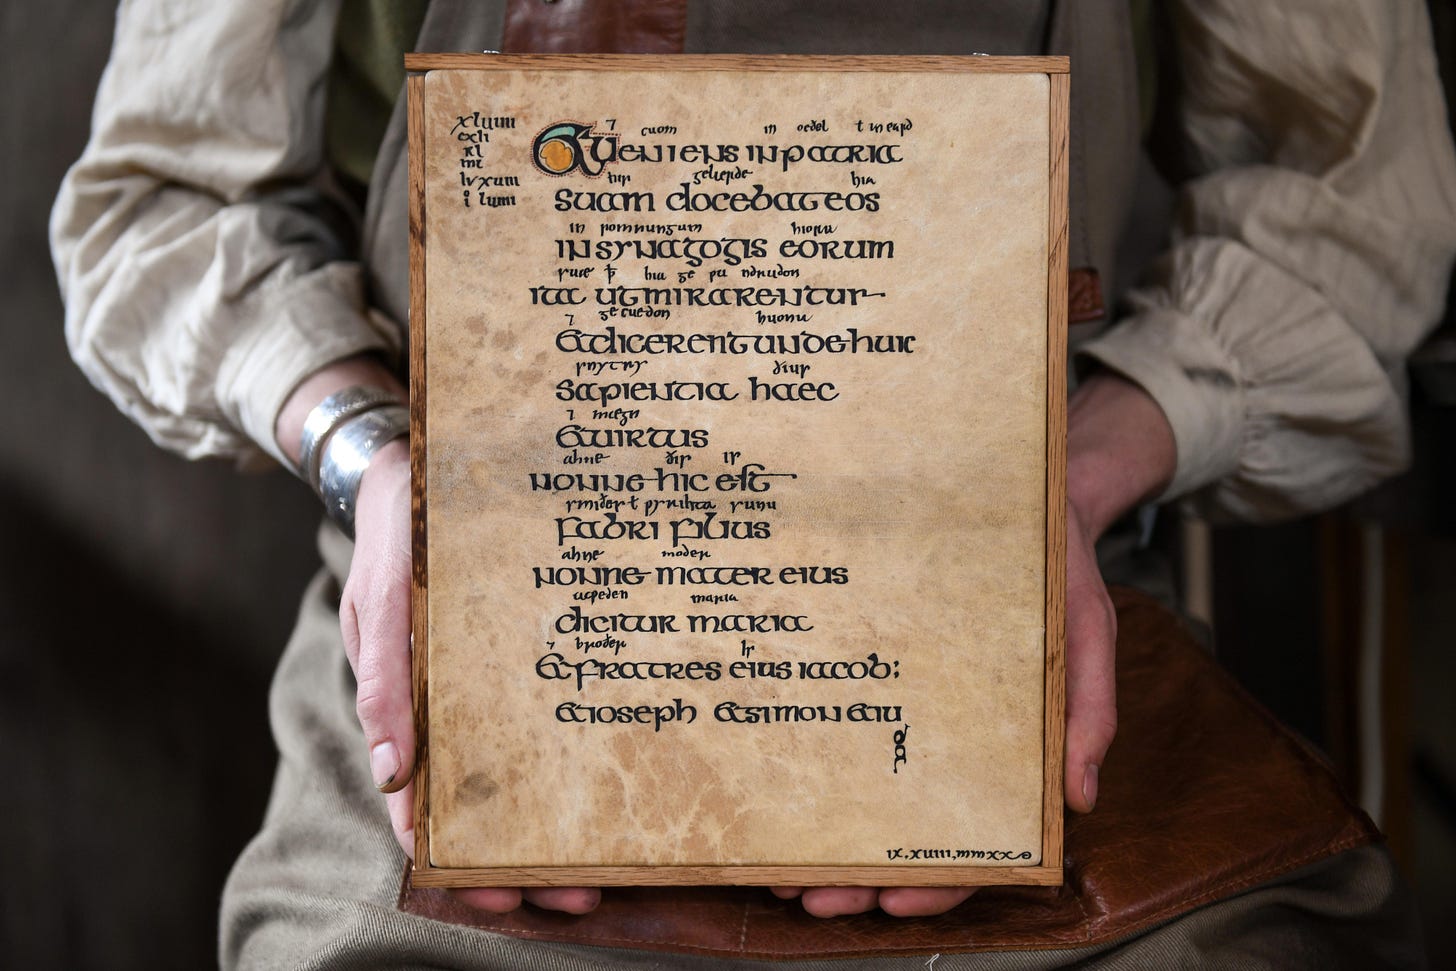 xluiii
cxli
xl
mt
lvxuiii
i luiii
⁊ cuom in oeðel ł in eard
Et ueniens in patria
hir gelærde hia
suam docebat eos
in somnungum hiora
in synagogis eorum
suæ þ hia ge undradon
ita ut mirarentur
⁊ gecuedon huona
et dicerent unde huic
snytry ðius
sapientia haec
⁊ mægn
et uirtus
ahne ðis is
nonne hic est
smiðes ł pyrihta sunu
fabri filius
ahne moder
nonne mater eius
acueden maria
dicitur maria
⁊ broðer is
et fratres eius iacob;
et ioseph et simon et iu
da
ix.xuiii.mmxx